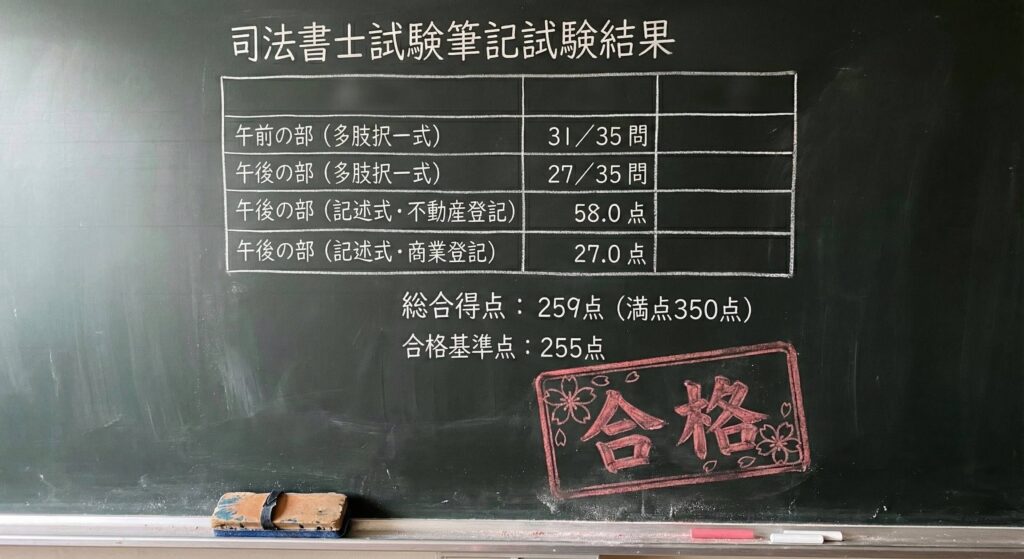 司法書士試験筆記試験結果
午前の部（多肢択一式） 31／35 問
午後の部（多肢択一式） 27／35 問
午後の部（記述式・不動産登記） 58.0 点
午後の部（記述式・商業登記） 27.0 点
総合得点：259点（満点350点）
合格基準点：255点
合格